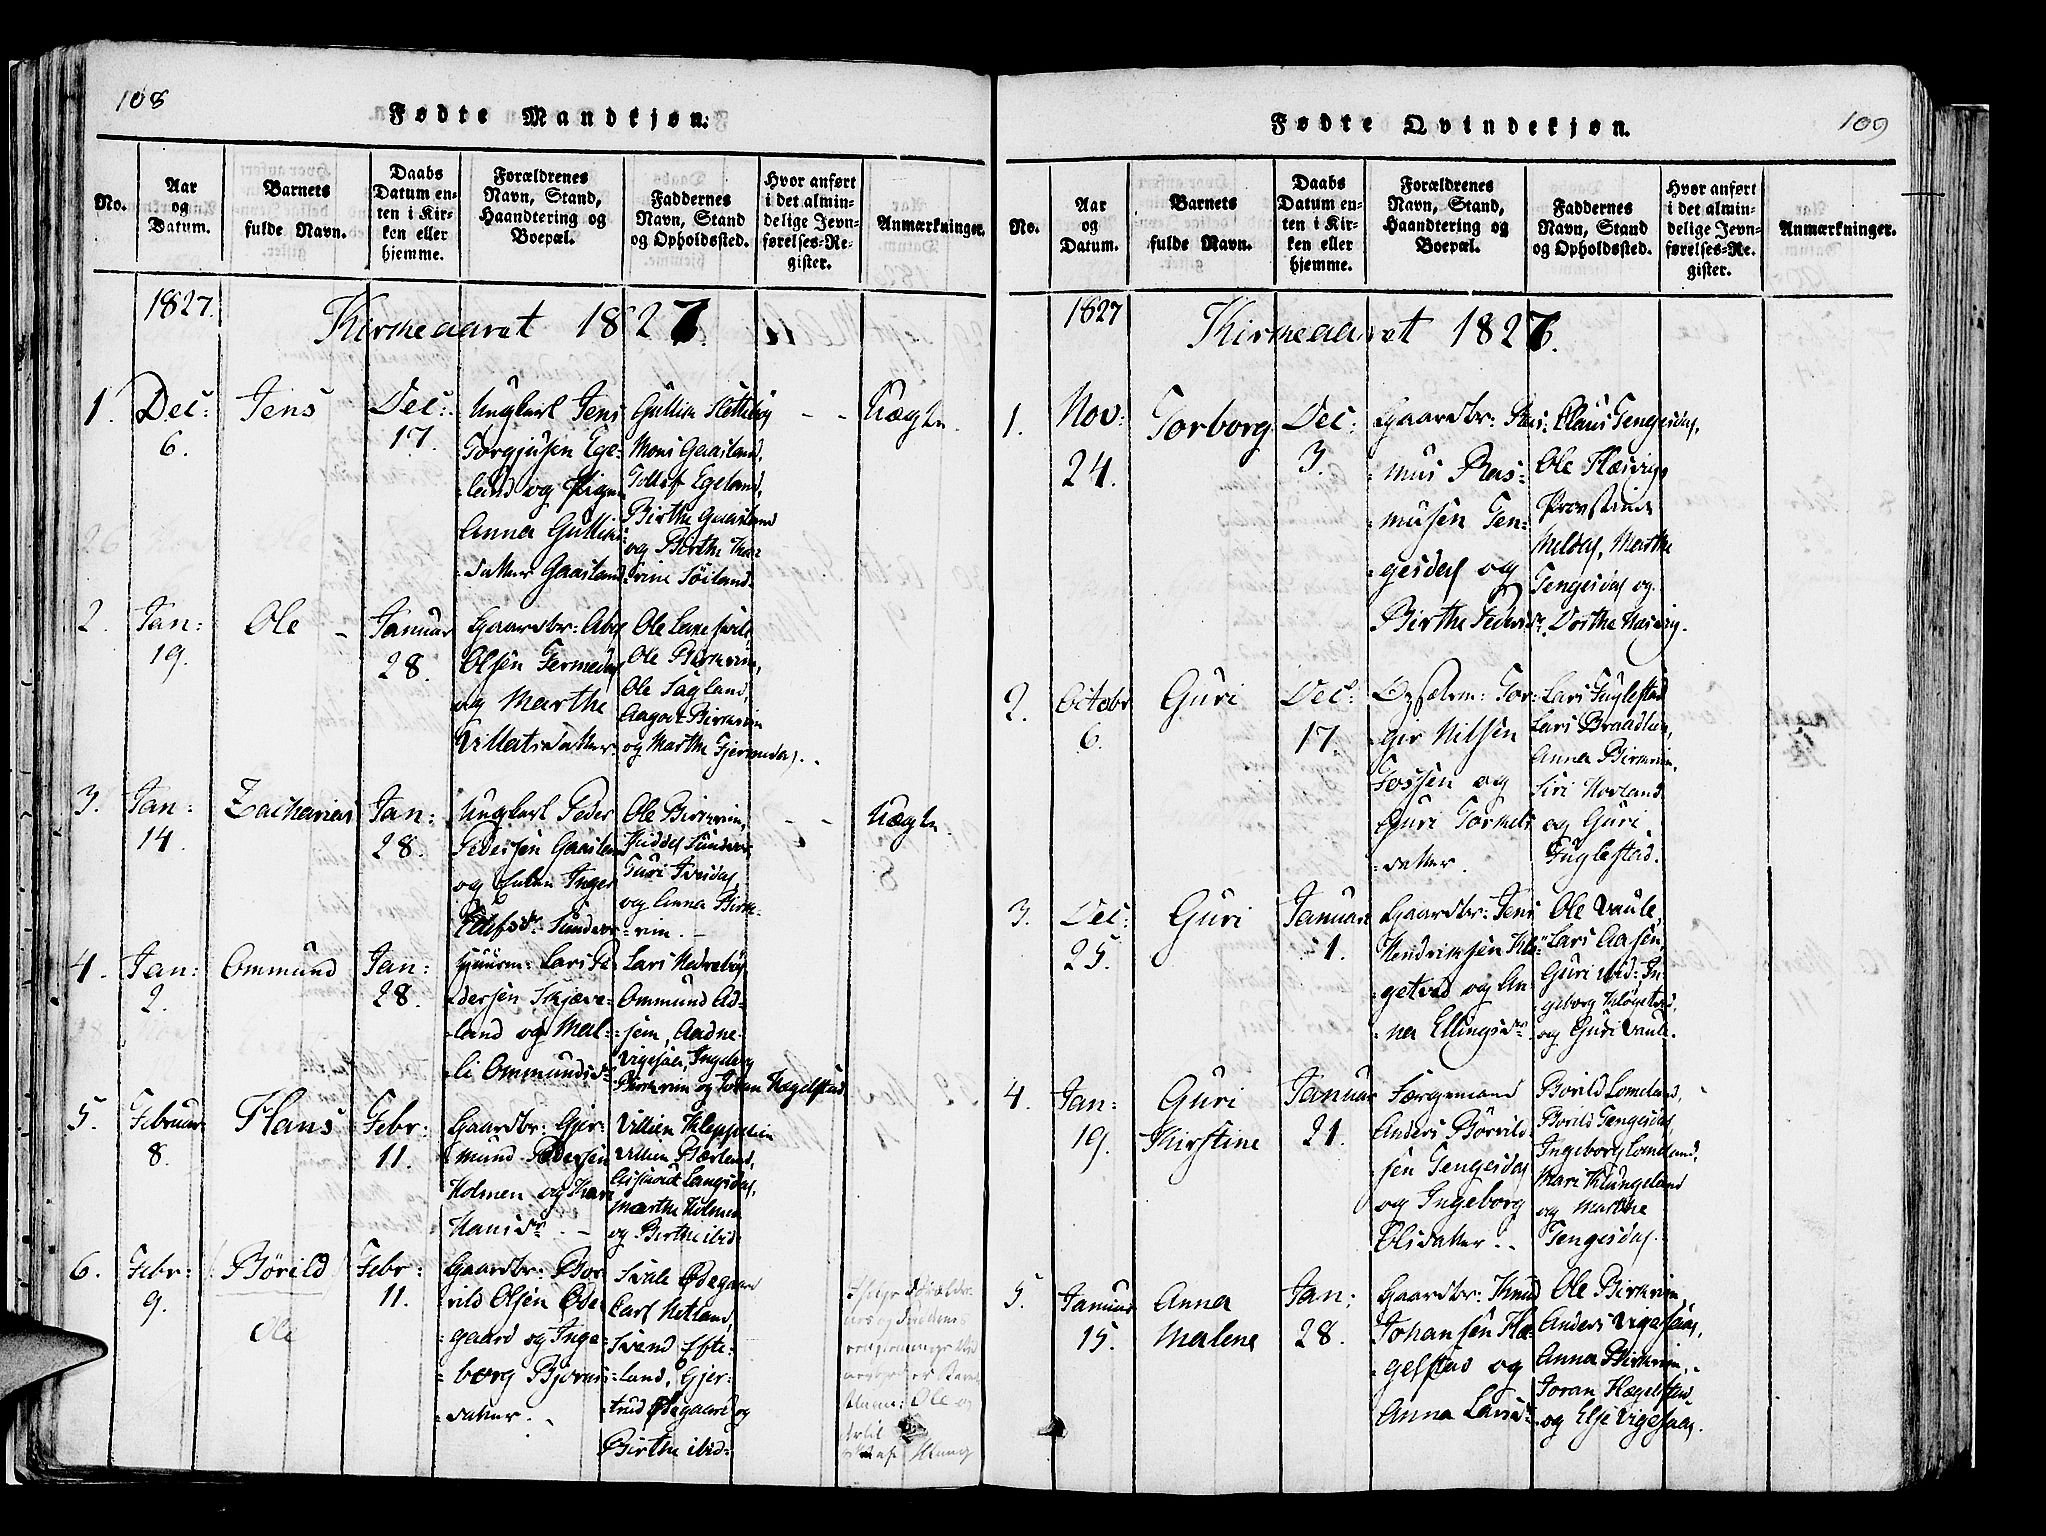 108
Fødte Mandkjøn.
No.
Aar
og
Datum.
Barnets
fulde Navn.
Daabs
Datum en-
ten i Kir-
ken eller
hjemme.
Forældrenes
Navn, Stand,
Haandtering og
Boepæl.
Faddernes
Navn, Stand
og Opholdssted.
Hvor anført
i det almin-
delige Jevn-
førelses-Re-
gister.
Anmærkninger.
1827.
Kirkeaaret 1827.
1.
Dec:
6.
Jens
Dec:
17.
Ungkarl Jens
Torgjusen Ege-
-land og Pigen
Anna Gullich
-datter Gaasland
Gullik Slettebøg
Mons Gaasland,
Tollef Egeland,
Birthe Gaasland
og Birthe Kar
-rine Söiland.
- -
Uægte.
2.
Jan:
19.
Ole
Januar
28.
Gaardbr: Abel
Olsen Fermedal
og Marthe
Villatsdatter
Ole
Ole Birkrim,
Ole Sagland,
Aagot Birkrim
og Marthe Gjermedal.
3.
Jan:
14.
Zacharias
Jan:
28.
Ungkarl Peder
Pedersen Gaasland
og Enken Inger
Sundvor
Ole Birkrim,
Siddel Sundvor,
Guri Ivesdal
og Anna Birk-
-rim.
- -
Uægte.
4.
Jan:
2.
Ommund
Jan:
28.
Huusm: Lars Pe
dersen Skjæve-
-land og Mal-
-li Ommundsdr
Lars Nedrebøe
Ommund Ad-
-sem, Aadne
Vigesaae, Ingeborg
Birkrim og Joran Hægelstad
5.
Februar
8.
Hans
Febr:
11.
Gaardbr: Gjer-
mund Pedersen
Holmen og Kari
Hansdr
Villum
Villum Bærland,
Langsdal,
Marthe Holmen
og Birthe ibid:
6.
Febr:
9.
Börild
Ole
Febr:
11.
Gaardbr: Bor
rild Olsen Øde
-gaard og Inge-
-borg Bjorns
-datter.
Svale Ødegaard
Carl Netland,
Svend Efte-
-land, Gjer-
-trud Ødegaard og
Birthe ibid:
109
Fødte Qvindekjøn.
No.
Aar
og
Datum.
Barnets
fulde Navn.
Daabs
Datum en-
ten i Kir-
ken eller
hjemme.
Forældrenes
Navn, Stand,
Haandtering og
Boepæl.
Faddernes
Navn, Stand
og Opholdssted.
Hvor anført
i det almin-
delige Jevn-
førelses-Re-
gister.
Anmærkninger.
1827
Kirkeaaret 1827.
1.
Nov:
24.
Torborg
Dec:
3.
Gaardbr: Ras:
-mus Ras-
musen Ten-
gesdal og
Birthe Pedersdr.
Claus Tengesdal,
Ole Hæsvig,
Provstinde
Meldal, Marthe
Tengesdal og
Dorthe Hæsvig.
2.
Octobr
6.
Guri
Dec:
17.
Opsidm: Tor-
ger Nilsen
Fossen og
Guri Torkels
-datter.
Lars Fuglestad
Lars Braadlien,
Anna Birkrim,
Siri Hovland
og Guri
Fuglestad.
3.
Dec:
25.
Guri
Januar
1.
Gaardbr: Jens
Hendriksen Klø-
getved og An
na Ellingsdr
Ole Vaule,
Lars Aasen,
Guri ibid: In
-geborg Kløgetved
og Guri Vaule.
4.
Jan:
19.
Guri
Kirstine
Januar
21.
Færgemand
Anders Börild-
sen Tengesdal
og Ingeborg
Olsdatter
Borild Lomeland,
Borild Tengesdal
Ingeborg Lomeland,
Mari Klungeland
og Marthe
Tengesdal.
5.
Januar
15.
Anna
Malene
Jan:
28.
Gaardbr: Knud
Johansen Hæ-
gelstad og
Anna Larsdr
Ole Birkrim,
Anders Vigesaae,
Anna Birkrim,
Joran Hægelstad
og Else Vigesaae.